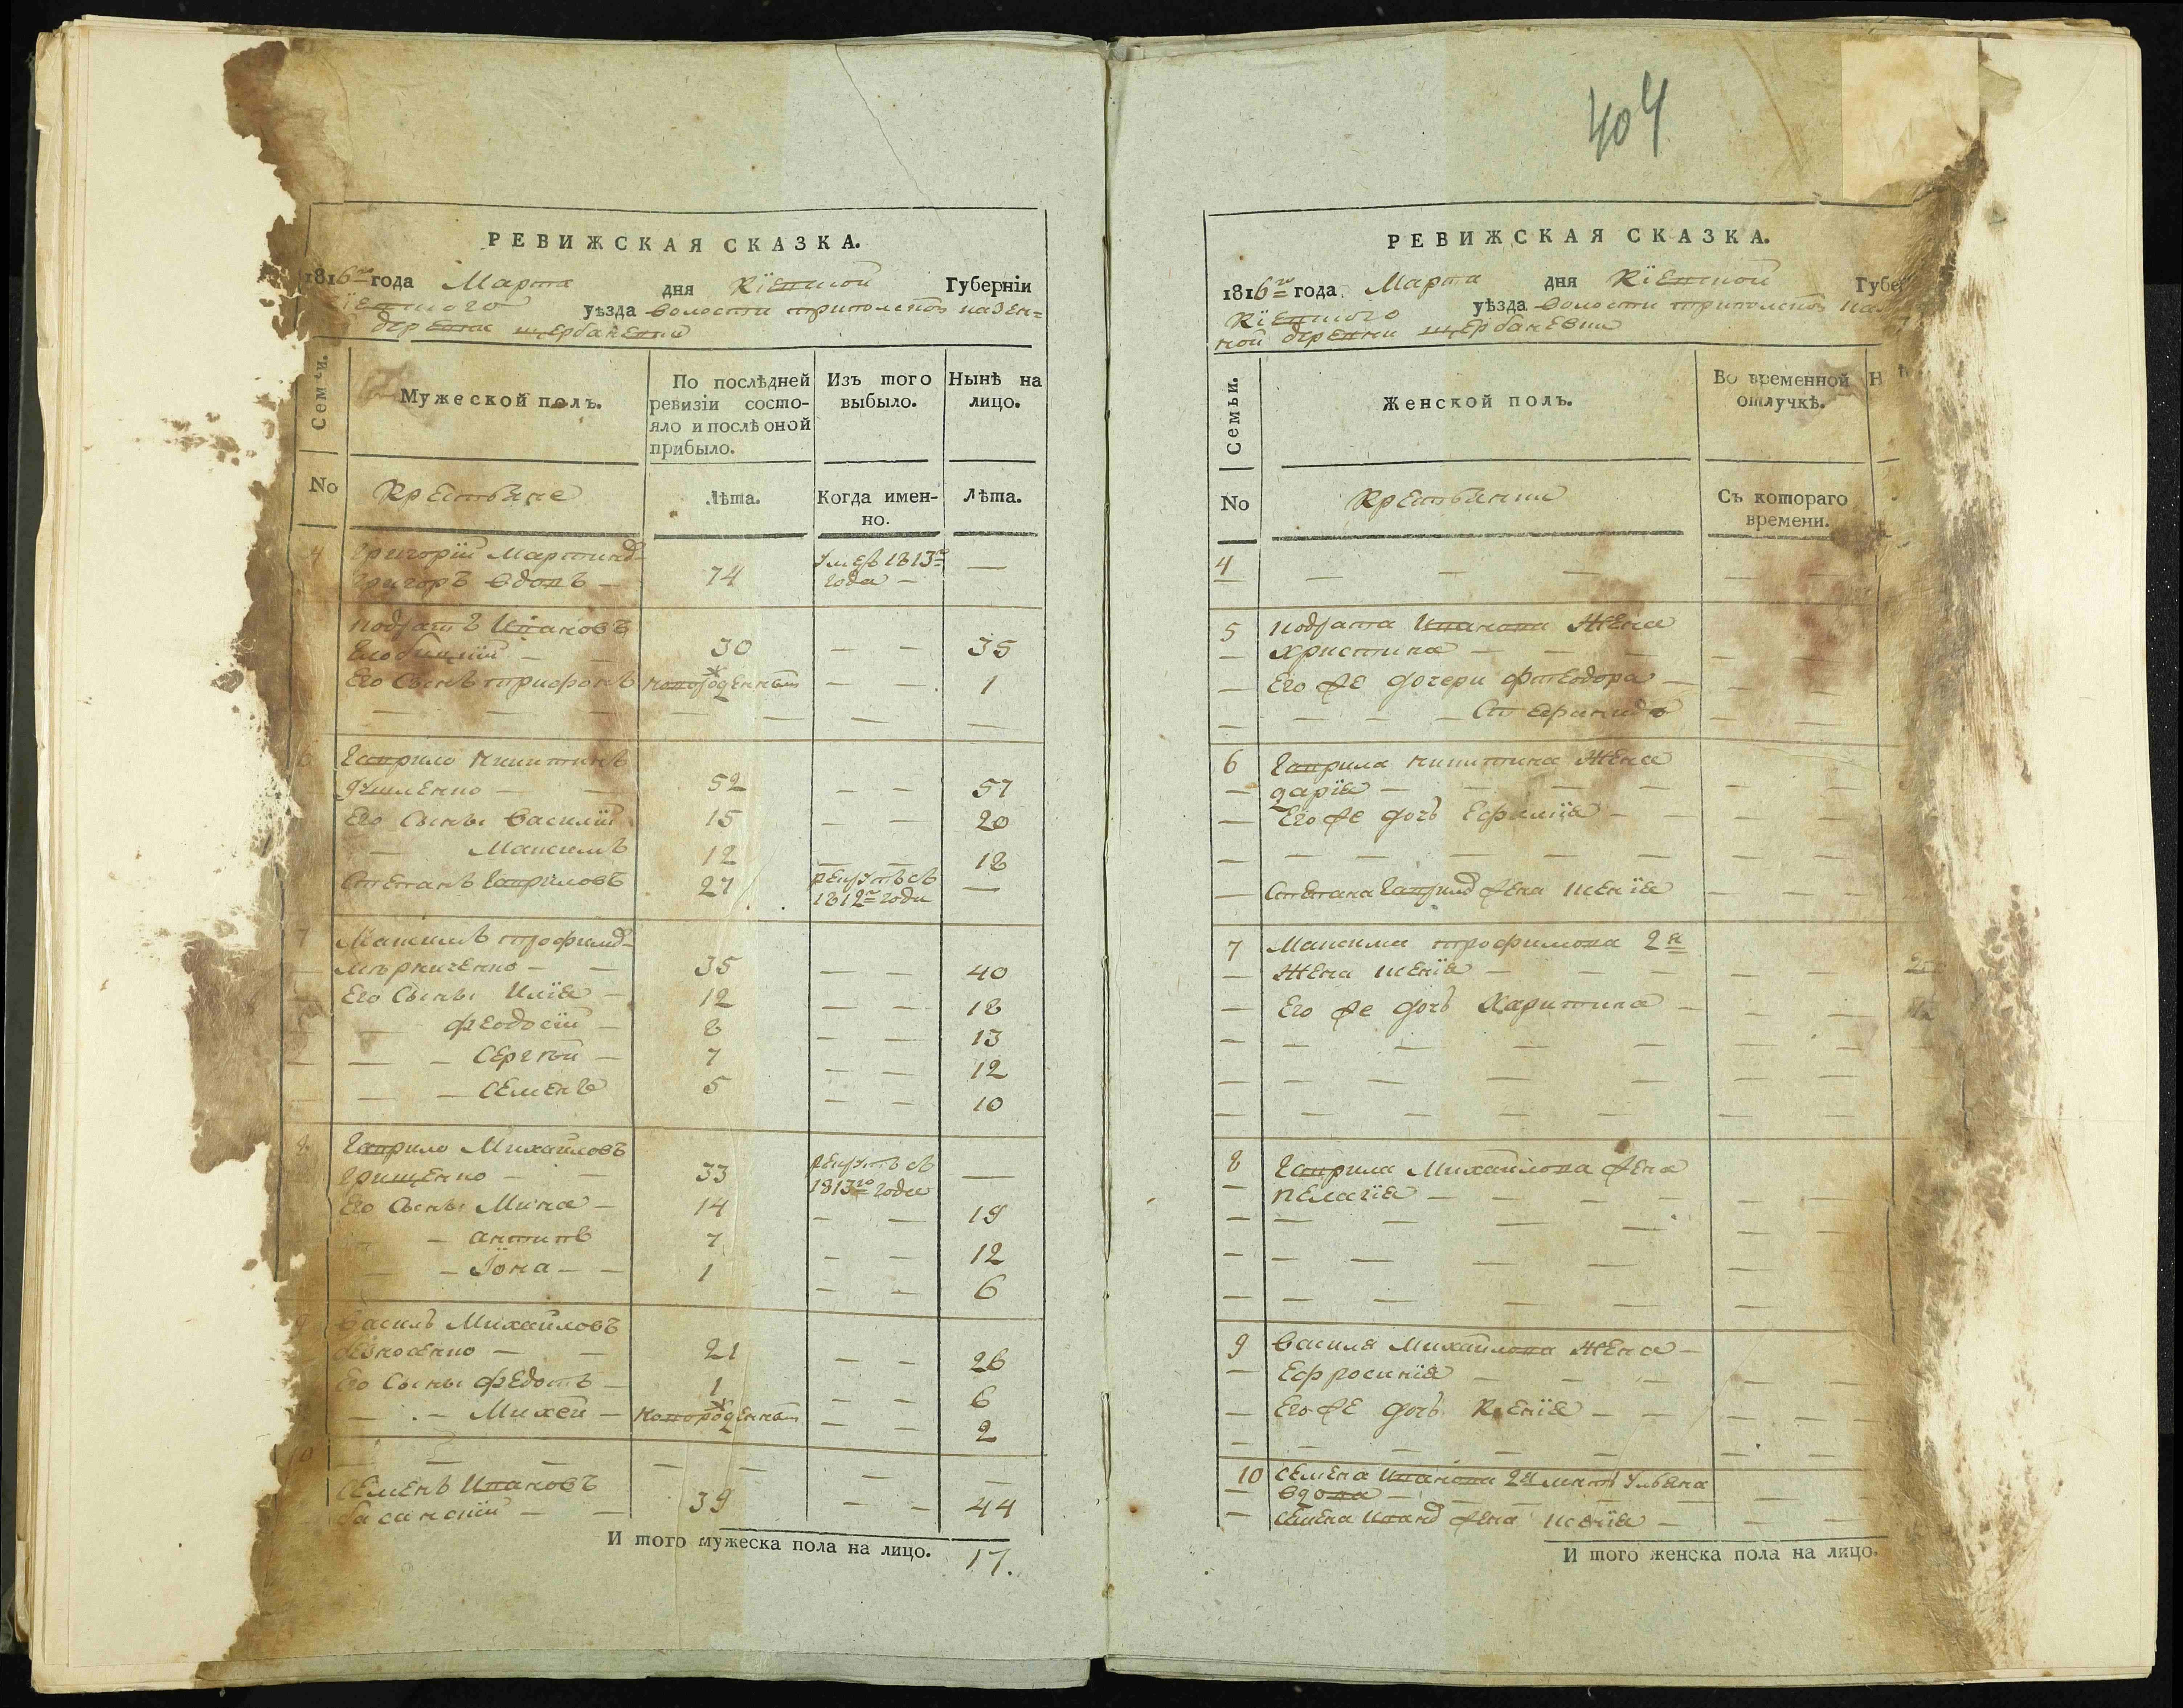 404
РЕВИЖСКАЯ СКАЗКА.
1816го года Марта дня Кїевской Губерніи
Кїевского уѣзда волости трипольской казен=
деревни щербаневки
Семьи.
Мужеской полъ.
По послѣдней ревизіи состо-
яло и послѣ оной
прибыло.
Изъ того
выбыло.
Нынѣ на
лицо.
No
Крестьяне
Лѣта.
Когда имен-
но.
Лѣта.
4 Григорїй Мартинов
74 умре 1813го года —
Кодратъ Ивановъ
30 — — 35
Его Сынъ трифонъ новорожденный — — 1
6 Гаврило никитинъ
52 — — 57
Его Сынъ Василїй 15 — — 20
— Максимъ 12 — — 18
Степанъ Гавриловъ 27 рекрутъ съ 1812го года —
7 Максимъ трофимов
мѣрниченко — 35 — — 40
Его Сынъ Илїя — 12 — — 18
— феодосїй — 8 — — 13
— — Сергѣй — 7 — — 12
— — Семенъ 5 — — 10
8 Гаврило Михайловъ
грищенко — 33 рекрутъ съ 1813го года —
Его Сынъ Мина — 14 — — 19
— антипъ 7 — — 12
— Їона — 1 — — 6
9 Василь Михайловъ
21 — — 26
Его Сынъ федотъ — 1 — — 6
— Михей — новорожденный — — 2
10
Семенъ Ивановъ
басанскїй — 39 — — 44
И того мужеска пола на лицо. 17.
РЕВИЖСКАЯ СКАЗКА.
1816го года Марта дня Кїевской Губе
Кїевского уѣзда волости трипольской каз
ной деревни щербаневки
Семьи.
Женской полъ.
Во временной
отлучкѣ.
Н
No
Крестьянки
Съ котораго
времени.
4 — — —
5 Кодрата Иванова Жена
— христина —
— Его же дочери фтеодора —
— Стефанида
6 Гаврила никитина Жена
— дарїя —
— Его же дочь Ефимїя —
— Степана Гаврилов жена ксенїя
7 Максима трофимова 2я
— Жена ксенїя —
— Его же дочь Харитина —
8 Гаврила Михайлова жена
— пелагїя —
9 Василя Михайлова Жена —
— Ефросинїя
— Его же дочь Ксенїя —
10 Семена Иванова 2я мать Ульяна
— вдова —
— Семена Иванов жена ксенїя —
И того женска пола на лицо.